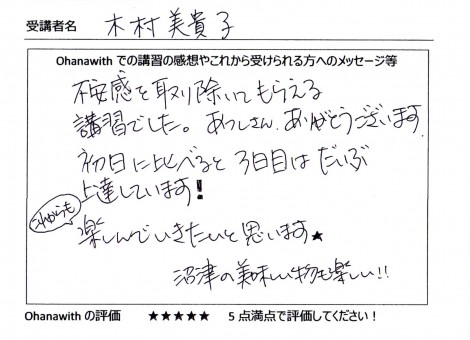 受講者名 木村美貴子
Ohanawith での講習の感想やこれから受けられる方へのメッセージ等
不安感を取り除いてもらえる
講習でした。あつしさん、ありがとうございます。
初日に比べると3日目はだいぶ
上達しています!
これからも
楽しんでいきたいと思います★
沼津の美味しい物も楽しい!!
Ohanawith の評価 ★★★★★ 5点満点で評価してください!